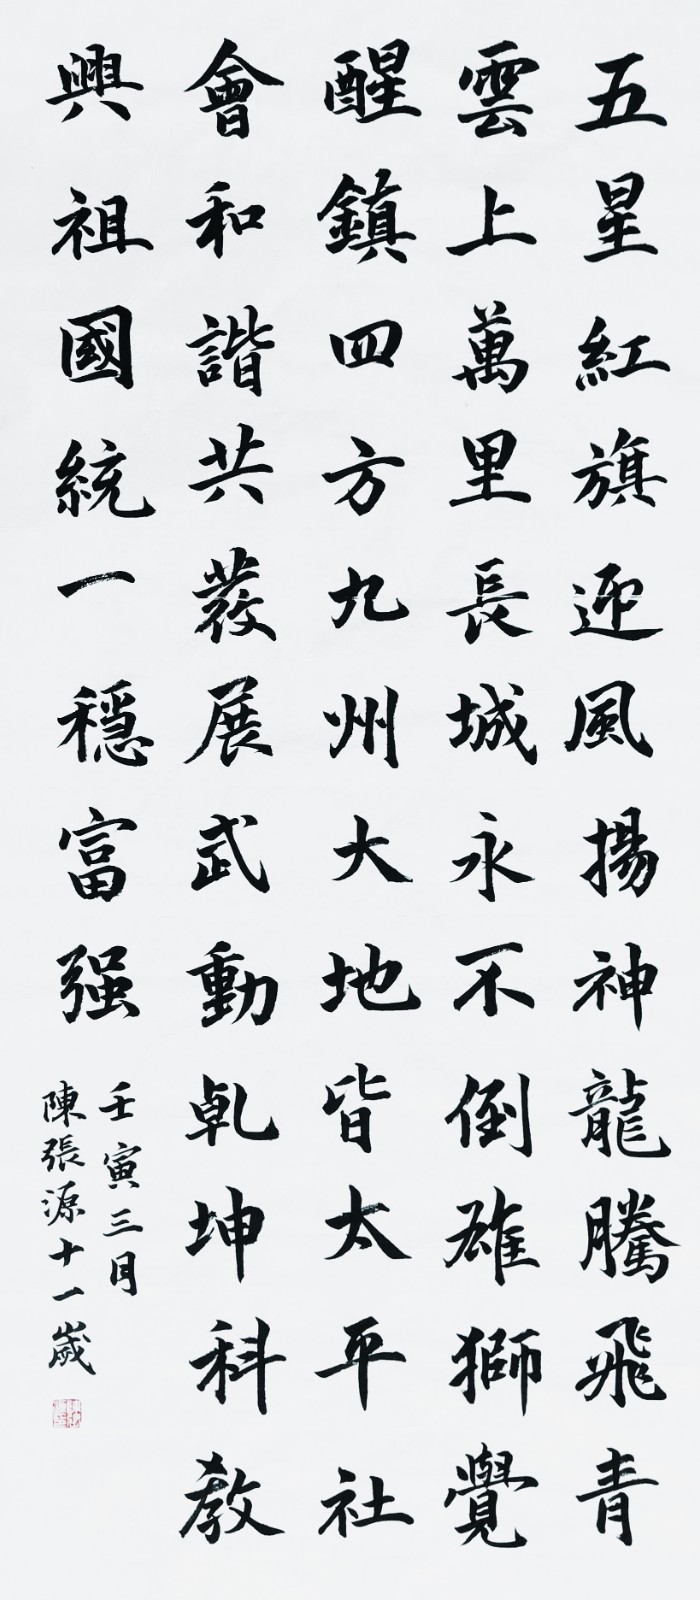 五星紅旗迎風揚神龍騰飛青
雲上萬里長城永不倒雄獅覺
醒鎮四方九州大地皆太平社
會和諧共發展武動乾坤科教
興祖國統一穩富强
壬寅三月
陳張源十一歲